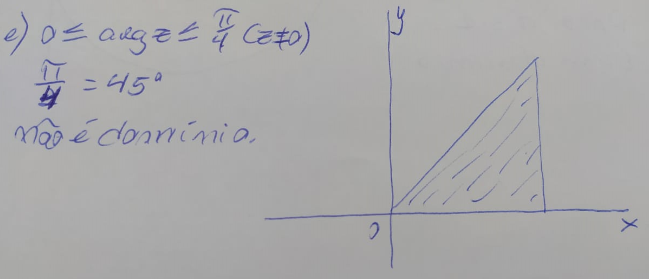 e) 0 ≤ arg z ≤ π/4 (z≠0)
π/4 = 45°
não é domínio.
y
0
x